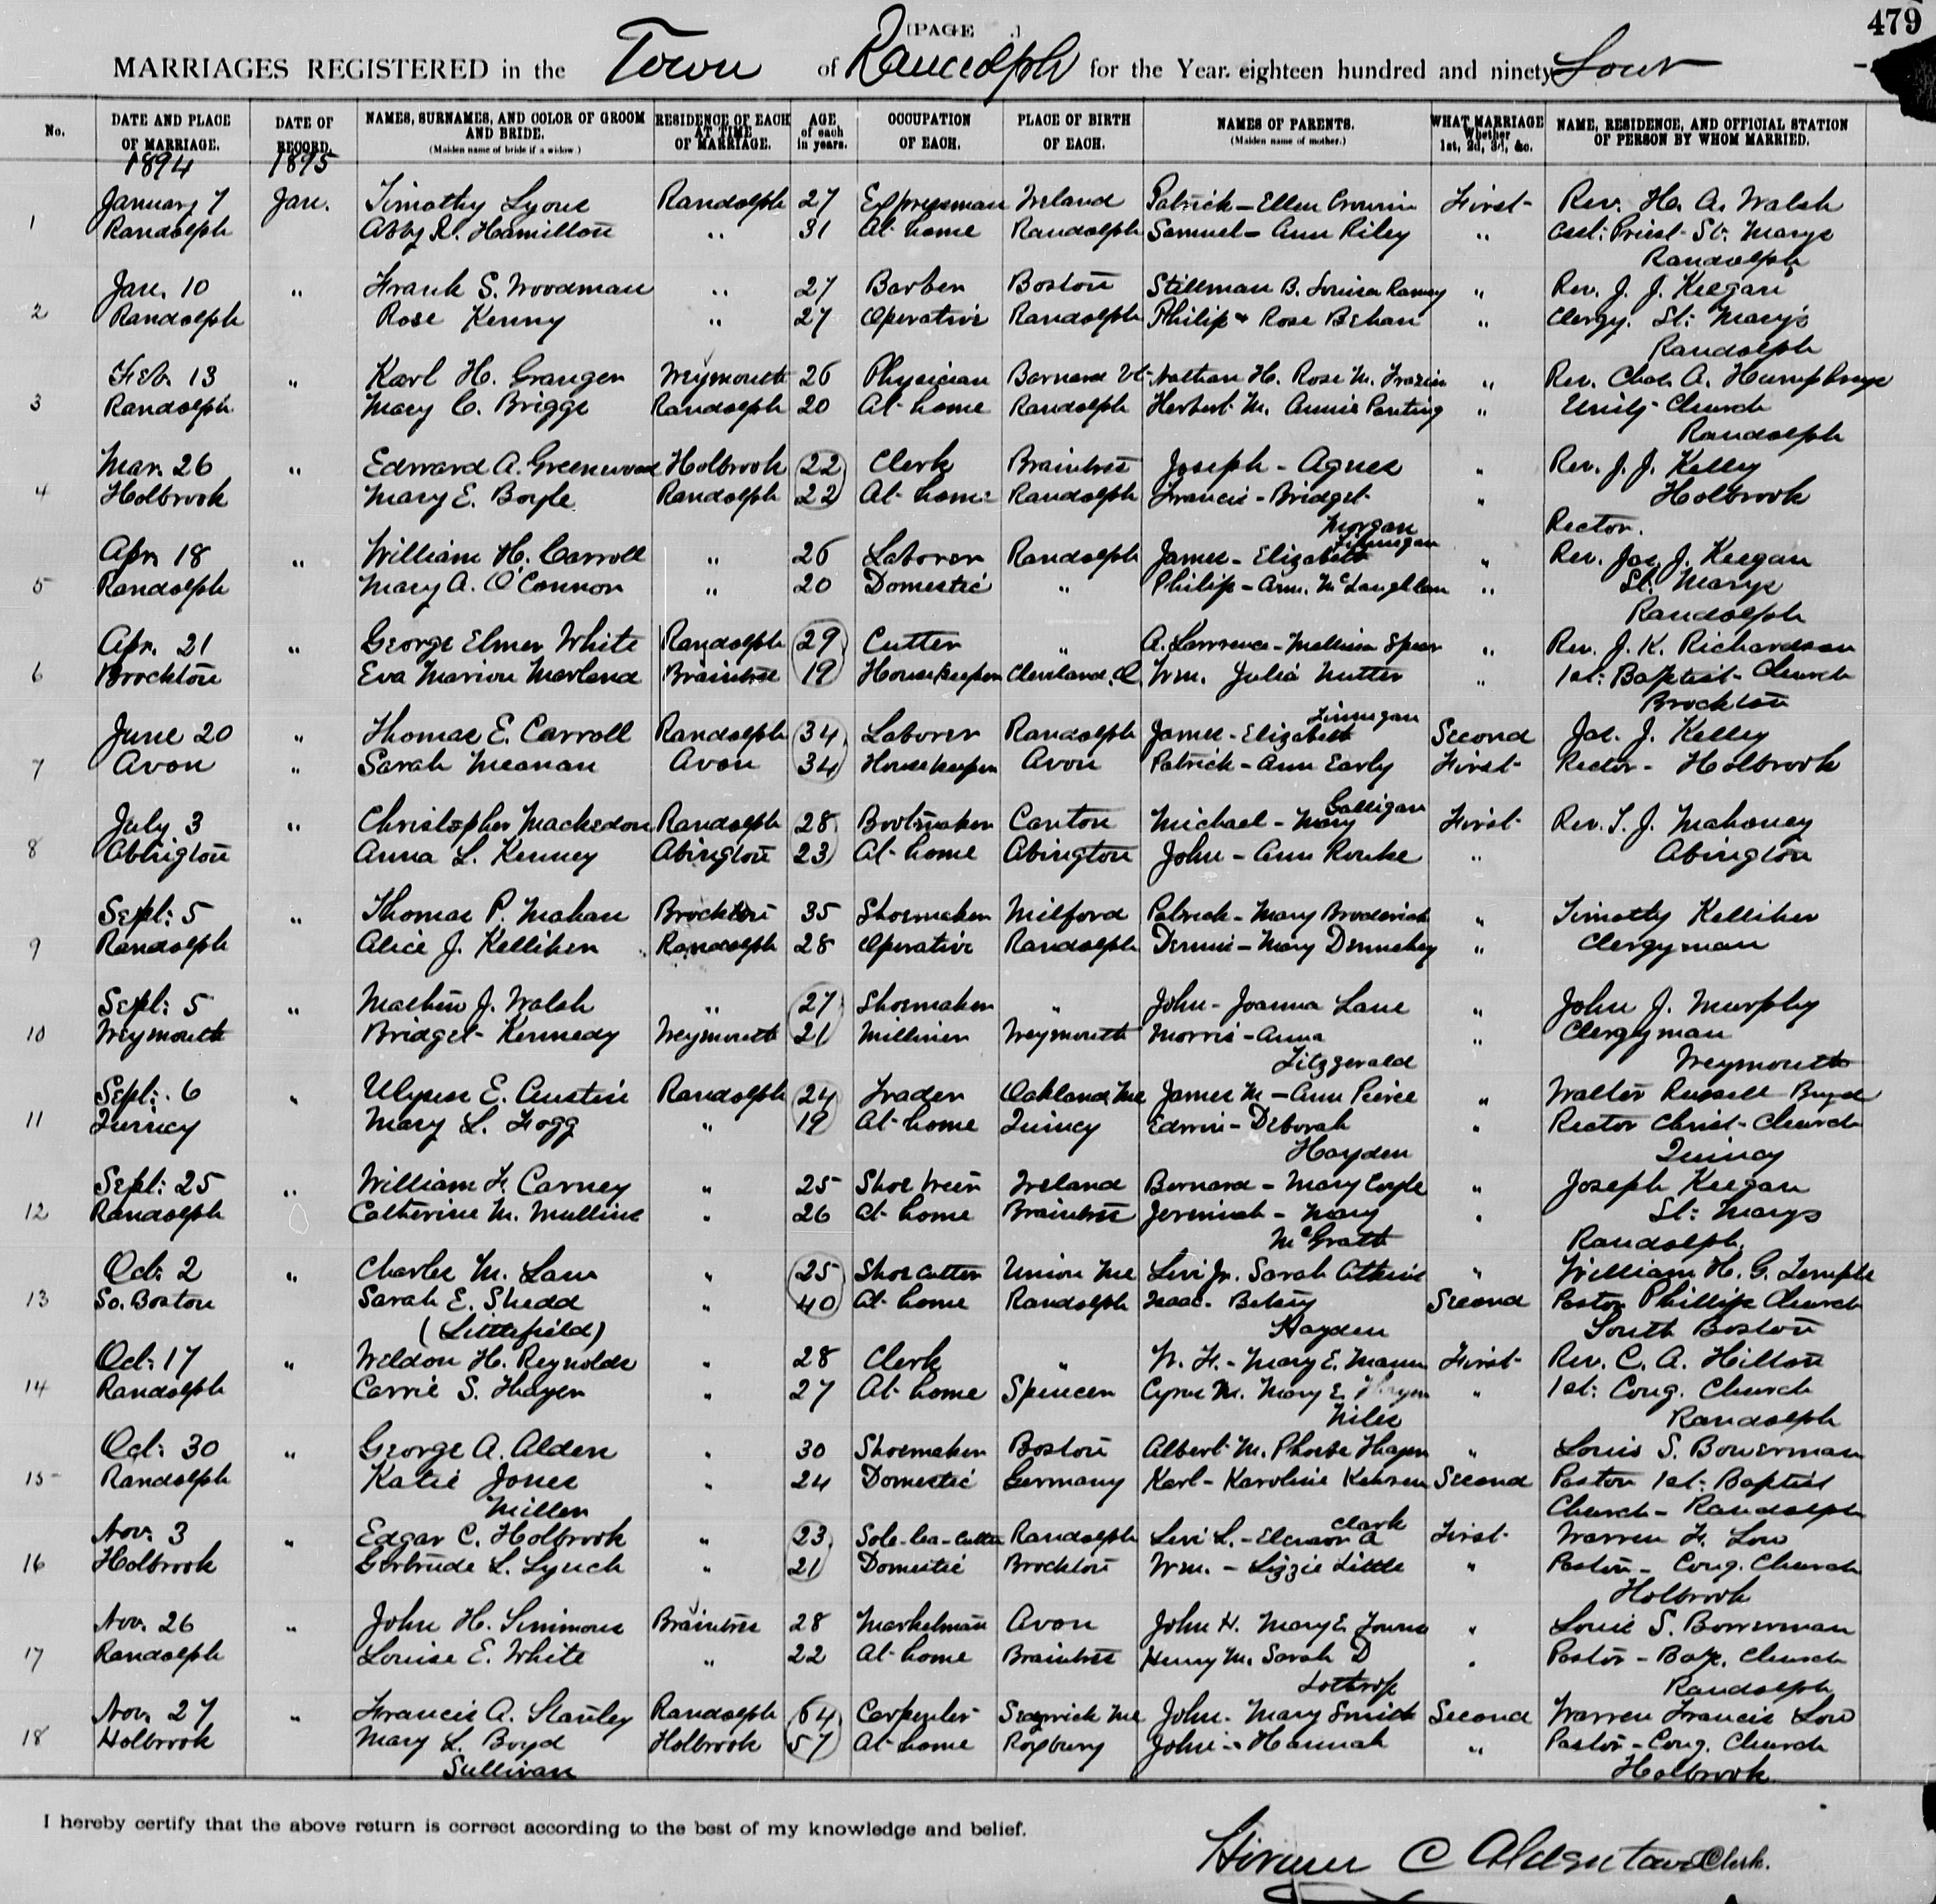 479
[PAGE .]
MARRIAGES REGISTERED in the Town of Randolph for the Year eighteen hundred and ninety four
No. DATE AND PLACE OF MARRIAGE. DATE OF RECORD. NAMES, SURNAMES, AND COLOR OF GROOM AND BRIDE. (Maiden name of bride if a widow.) RESIDENCE OF EACH AT TIME OF MARRIAGE. AGE of each in years. OCCUPATION OF EACH. PLACE OF BIRTH OF EACH. NAMES OF PARENTS. (Maiden name of mother.) WHAT MARRIAGE Whether 1st, 2d, 3d, &c. NAME, RESIDENCE, AND OFFICIAL STATION OF PERSON BY WHOM MARRIED.
1894 1895
January 7 Jan. Timothy Lyons Randolph 27 Expressman Ireland Patrick - Ellen Cronin First Rev. H. A. Walsh
1 Randolph Abby R. Hamilton " 31 At home Randolph Samuel - Ann Riley " Priest St. Marys
Randolph
Jan. 10 " Frank S. Woodman " 27 Barber Boston Stillman B. Louisa Ramsy " Rev. J. J. Keegan
2 Randolph Rose Kenny " 27 Operative Randolph Philip & Rose Behan " Clergy. St. Mary's
Randolph
Feb. 13 " Karl H. Granger Weymouth 26 Physician Barnard Vt. Nathan H. Rose M. Frazier " Rev. Chas. A. Humphreys
3 Randolph Mary C. Briggs Randolph 20 At home Randolph Herbert M. Annie Ponting " Unity Church
Randolph
Mar. 26 " Edward A. Greenwood Holbrook 22 Clerk Braintree Joseph - Agnes " Rev. J. J. Kelley
4 Holbrook Mary E. Boyle Randolph 22 At home Randolph Francis - Bridget " Holbrook
Morgan Rector.
Finnigan
Apr. 18 " William H. Carroll " 26 Laborer Randolph James - Elizabeth " Rev. Jas. J. Keegan
5 Randolph Mary A. O'Connor " 20 Domestic " Philip - Ann. McLaughlan " St. Marys
Randolph
Apr. 21 " George Elmer White Randolph 29 Cutter " A. Lawrence - Mellissa Spear " Rev. J. K. Richardson
6 Brockton Eva Marion Marland Braintree 19 Housekeeper Cleveland, O. Wm. Julia Nutter " 1st: Baptist Church
Brockton
Finnigan
June 20 " Thomas E. Carroll Randolph 34 Laborer Randolph James - Elizabeth Second Jas. J. Kelley
7 Avon " Sarah Meanan Avon 34 Housekeeper Avon Patrick - Ann Early First Rector - Holbrook
Galligan
July 3 " Christopher Mackedon Randolph 28 Bootmaker Canton Michael - Mary First Rev. T. J. Mahoney
8 Abington Anna L. Kenney Abington 23 At home Abington John - Ann Rourke " Abington
Sept: 5 " Thomas P. Mahan Brockton 35 Shoemaker Milford Patrick - Mary Broderick " Timothy Kelliher
9 Randolph Alice J. Kelliher Randolph 28 Operative Randolph Dennis - Mary Dennehey " Clergyman
Sept: 5 " Mathew J. Walsh " 27 Shoemaker " John - Joanna Lane " John J. Murphy
10 Weymouth Bridget Kennedy Weymouth 21 Milliner Weymouth Morris - Anna " Clergyman
Fitzgerald Weymouth
Sept: 6 " Ulysses E. Austin Randolph 24 Trader Oakland Me James M - Ann Pierce " Walter Russell Breed
11 Quincy Mary L. Fogg " 19 At home Quincy Edwin - Deborah " Rector Christ Church
Hayden Quincy
Sept: 25 " William F. Carney " 25 Shoe treer Ireland Bernard - Mary Coyle " Joseph Keegan
12 Randolph Catherine M. Mullins " 26 At home Braintree Jeremiah - Mary " St: Marys
McGrath Randolph
Oct: 2 " Charles M. Law " 25 Shoe cutter Union Me Levi Jr. Sarah Athens " William H. G. Temple
13 So. Boston Sarah E. Shedd " 40 At home Randolph Isaac - Betsey Second Pastor Phillips Church
(Littlefield) Hayden South Boston
Oct: 17 " Weldon H. Reynolds " 28 Clerk " W. F. - Mary E. Mann First Rev. C. A. Hilton
14 Randolph Carrie S. Thayer " 27 At home Spencer Cyrus M. Mary E. " 1st: Cong. Church
Niles Randolph
Oct: 30 " George A. Alden " 30 Shoemaker Boston Albert M. Phoebe Thayer " Louis S. Bowerman
15 Randolph Katie Jones " 24 Domestic Germany Karl - Karoline Second Pastor 1st: Baptist
Miller Church - Randolph
Clark
Nov. 3 " Edgar C. Holbrook " 23 Sole-lea-cutter Randolph Levi L. - Eleanor A First Warren F. Low
16 Holbrook Gertrude L. Lynch " 21 Domestic Brockton Wm. - Lizzie Little " Pastor - Cong. Church
Holbrook
Nov. 26 " John H. Simmons Braintree 28 Marketman Avon John H. Mary E. Towns " Louis S. Bowerman
17 Randolph Louise E. White " 22 At home Braintree Henry M. Sarah D " Pastor - Bap. Church
Lothrop Randolph
Nov. 27 " Francis A. Stanley Randolph 64 Carpenter Sedgwick Me John - Mary Smith Second Warren Francis Low
18 Holbrook Mary L. Boyd Holbrook 57 At home Roxbury John - Hannah " Pastor - Cong. Church
Sullivan Holbrook
I hereby certify that the above return is correct according to the best of my knowledge and belief.
Hiram C Alden Town Clerk.